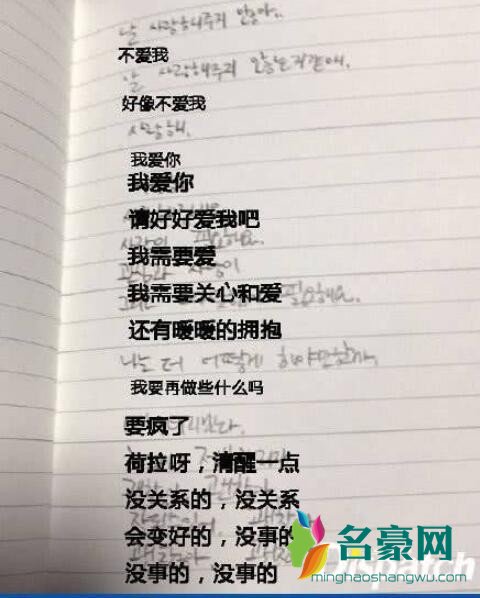 날 사랑해주지 않아..
不爱我
날 사랑해주지 않는거같애.
好像不爱我
사랑해.
我爱你
我爱你
请好好爱我吧
我需要爱
我需要关心和爱
필요해요.
还有暖暖的拥抱
나는 더 어떻게 해야만할까.
我要再做些什么吗
要疯了
荷拉呀，清醒一点
没关系的，没关系
会变好的，没事的
没事的，没事的
名豪网
minghaoshangwu.com
Dispatch